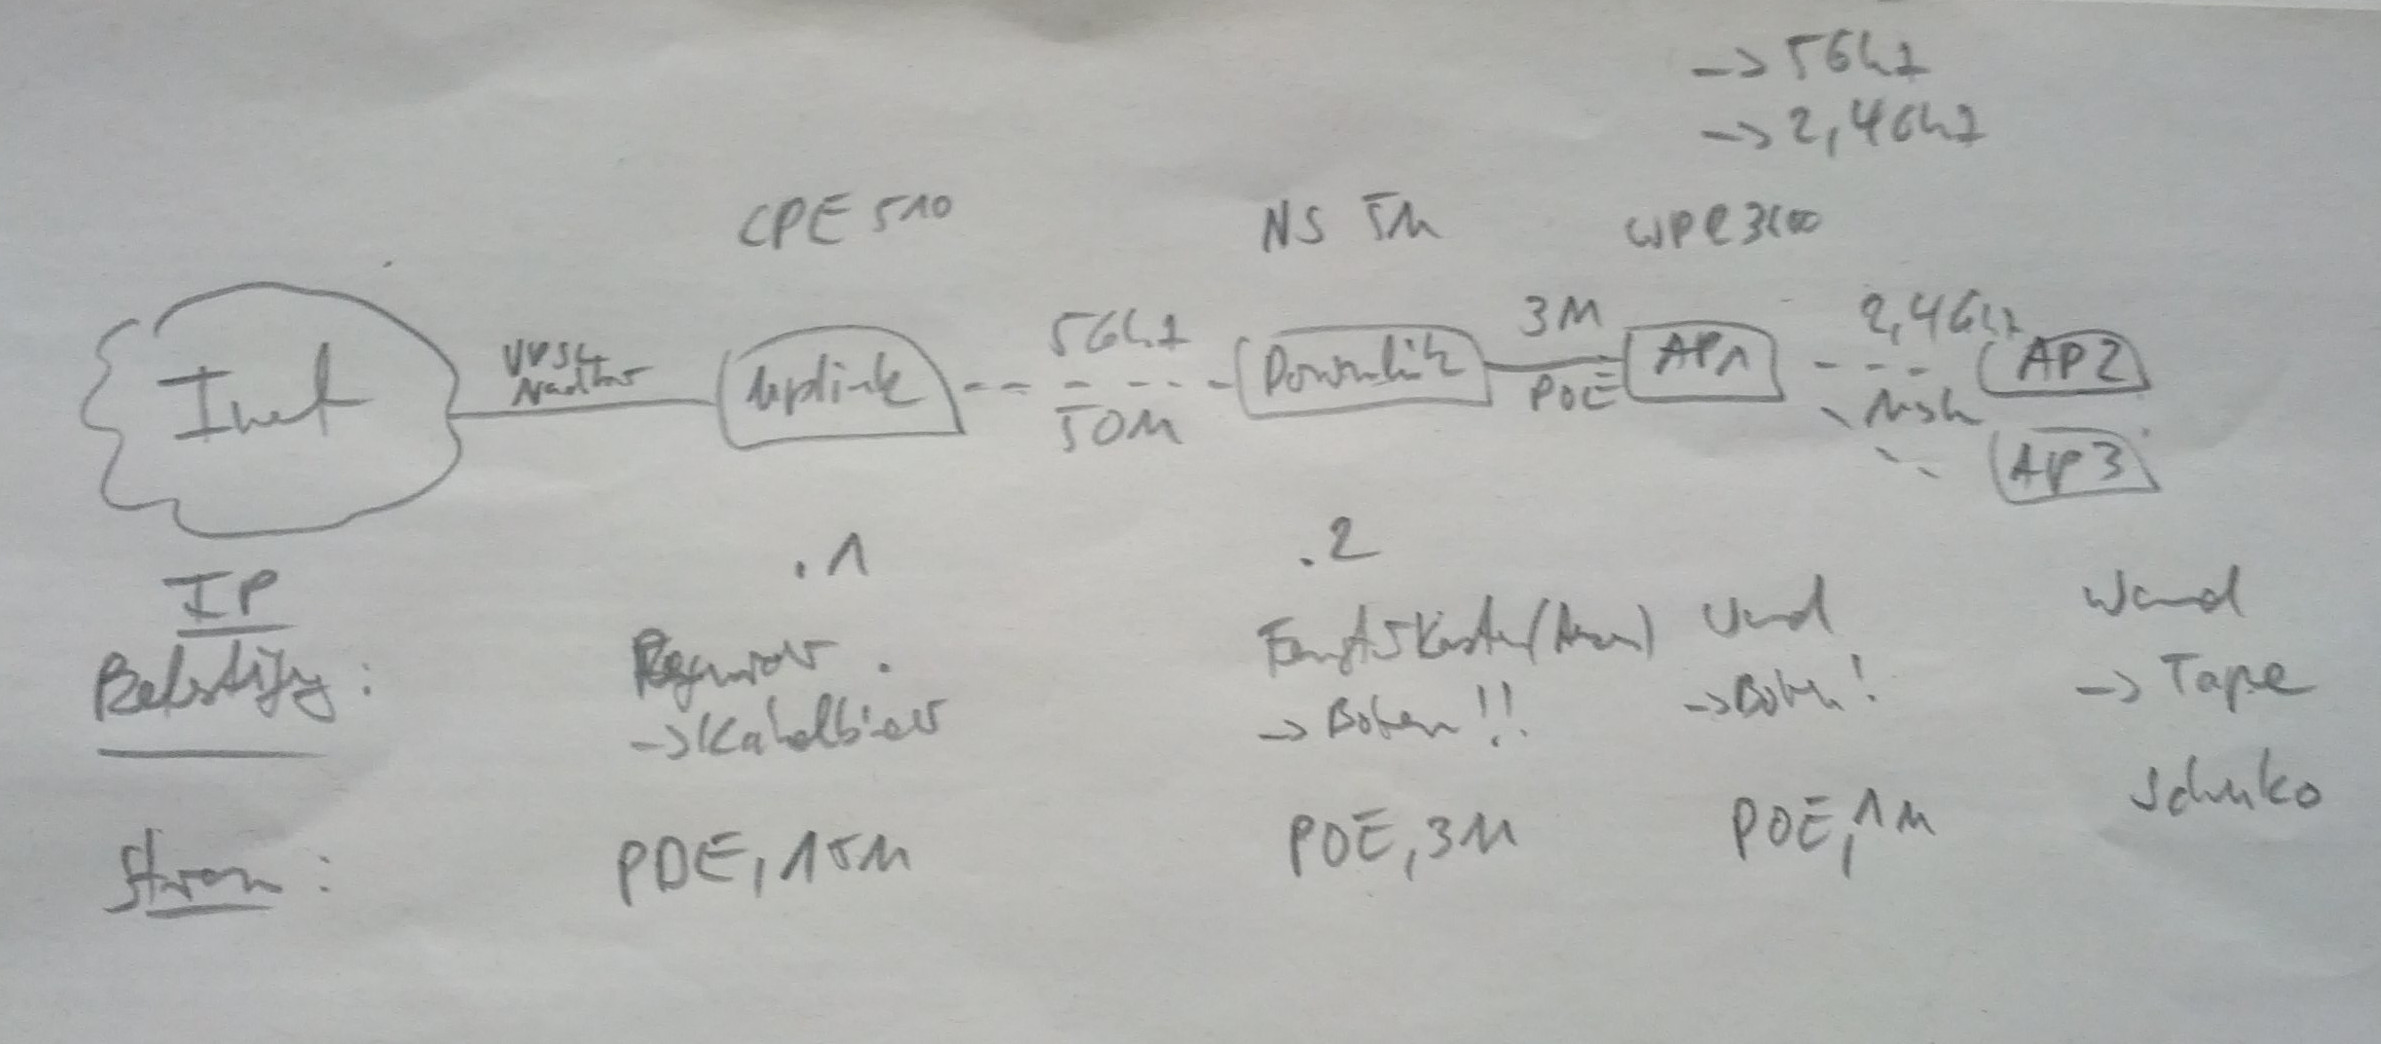 -> 5Ghz
-> 2,4Ghz
CPE 510
NS 5M
Inet
Nachbar
Uplink
5Ghz
50M
Downlink
3M
POE
AP1
2,4Ghz
Mesh
AP2
AP3
IP
.1
.2
Befestigung:
-> Kabelbinder
-> Bohren!!
Wand
-> Bohren!
Wand
-> Tape
Strom:
POE, 15M
POE, 3M
POE, 1M
Schuko